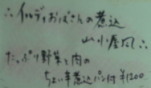 ∴イルディおばさんの煮込
山小屋風∴
たっぷり野菜と肉の
ちょい辛煮込 パン付 ¥1200